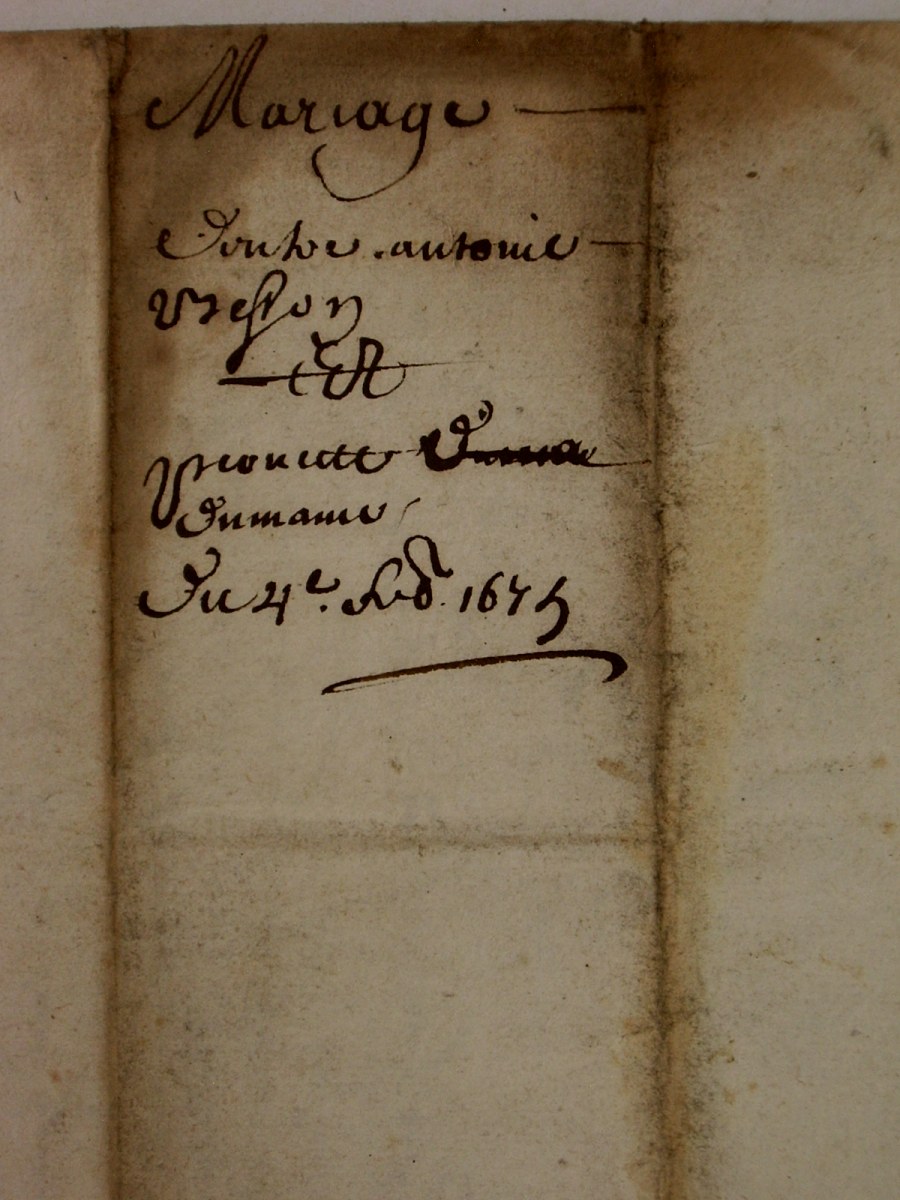 Mariage
Dentre antoine
Vesson
Et
Peronette
Dumaine
Du 4e. feb. 1675